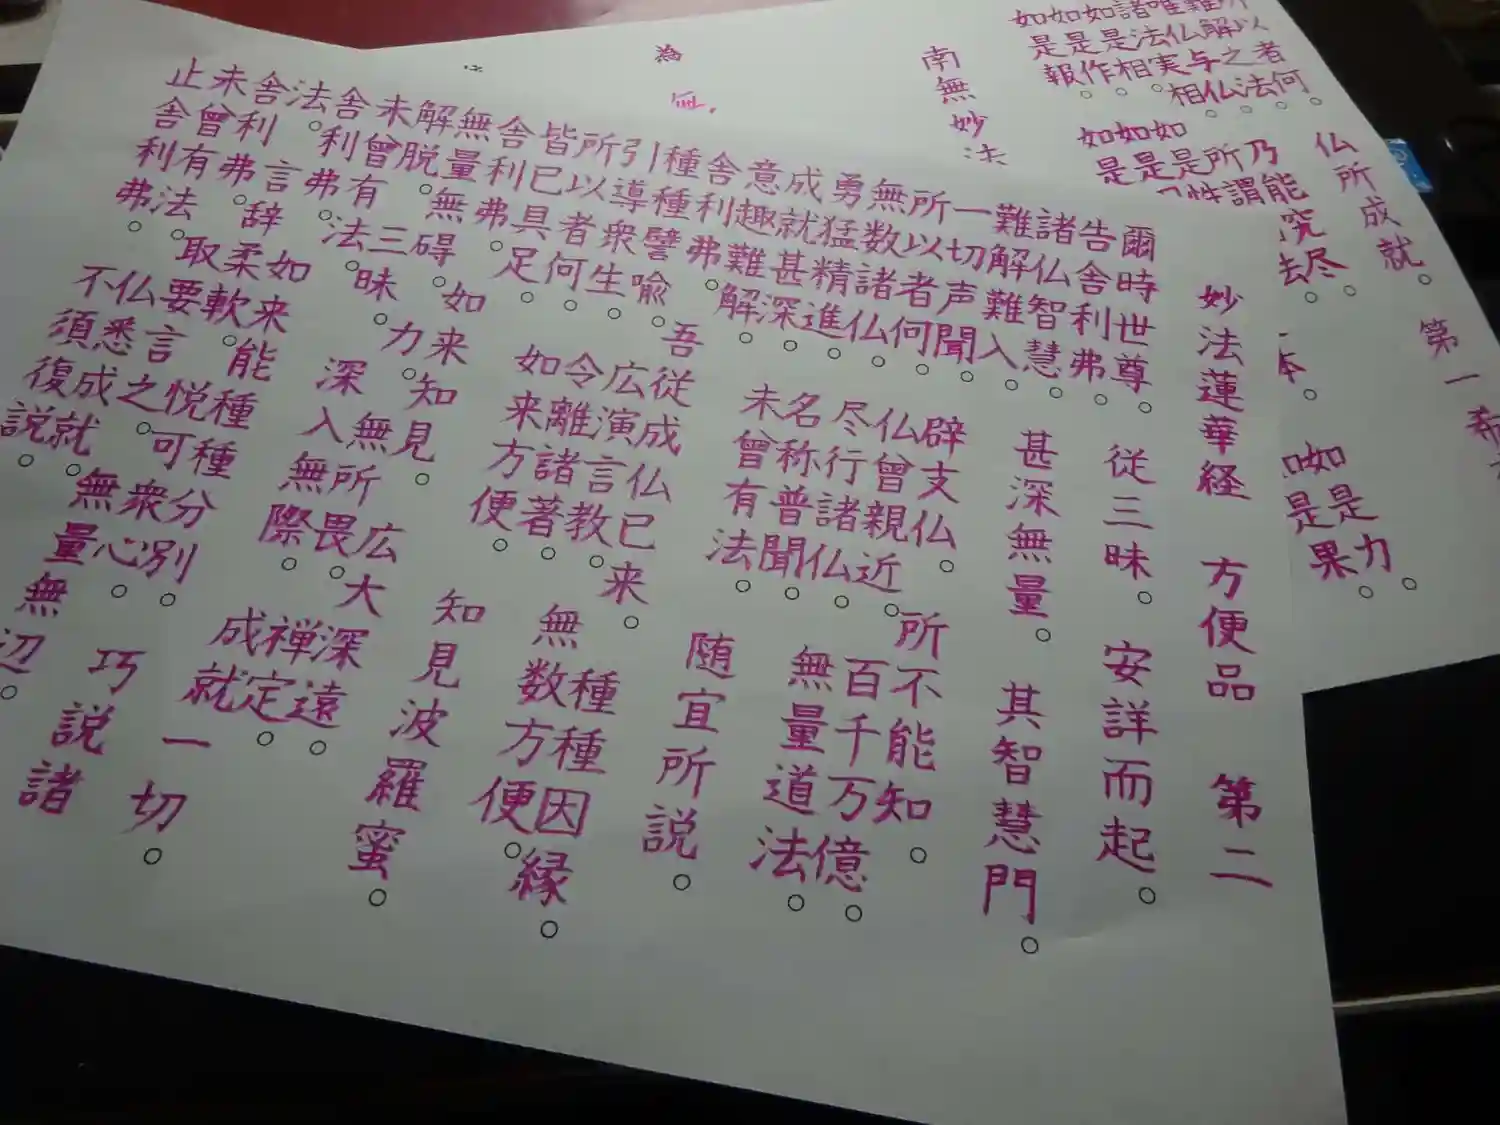 妙法蓮華経 方便品 第二
爾時世尊。従三昧。安詳而起。
告舎利弗。
諸仏智慧。甚深無量。其智慧門。
難解難入。
一切声聞。辟支仏。所不能知。
所以者何。仏曾親近。百千万億。
無数諸仏。尽行諸仏。無量道法。
勇猛精進。名称普聞。
成就甚深。未曾有法。随宜所説。
意趣難解。
舎利弗。吾従成仏已来。種種因縁。
種種譬喩。広演言教。無数方便。
引導衆生。令離諸著。
所以者何。如来方便。知見波羅蜜。
皆已具足。
舎利弗。如来知見。広大深遠。
無量無碍。力。無所畏。禅定。
解脱。三昧。深入無際。成就一切。
未曾有法。
舎利弗。如来能種種分別。巧説諸
法。言辞柔軟。悦可衆心。
舎利弗。取要言之。無量無辺。
未曾有法。仏悉成就。
止舎利弗。不須復説。
所以者何。仏所成就。第一希
難解之法。
唯仏与仏。乃能究尽。
諸法実相。所謂
如是相。如是性
如是力。
如是作。如是
如是果。
如是報。如是
本
南無妙法
為